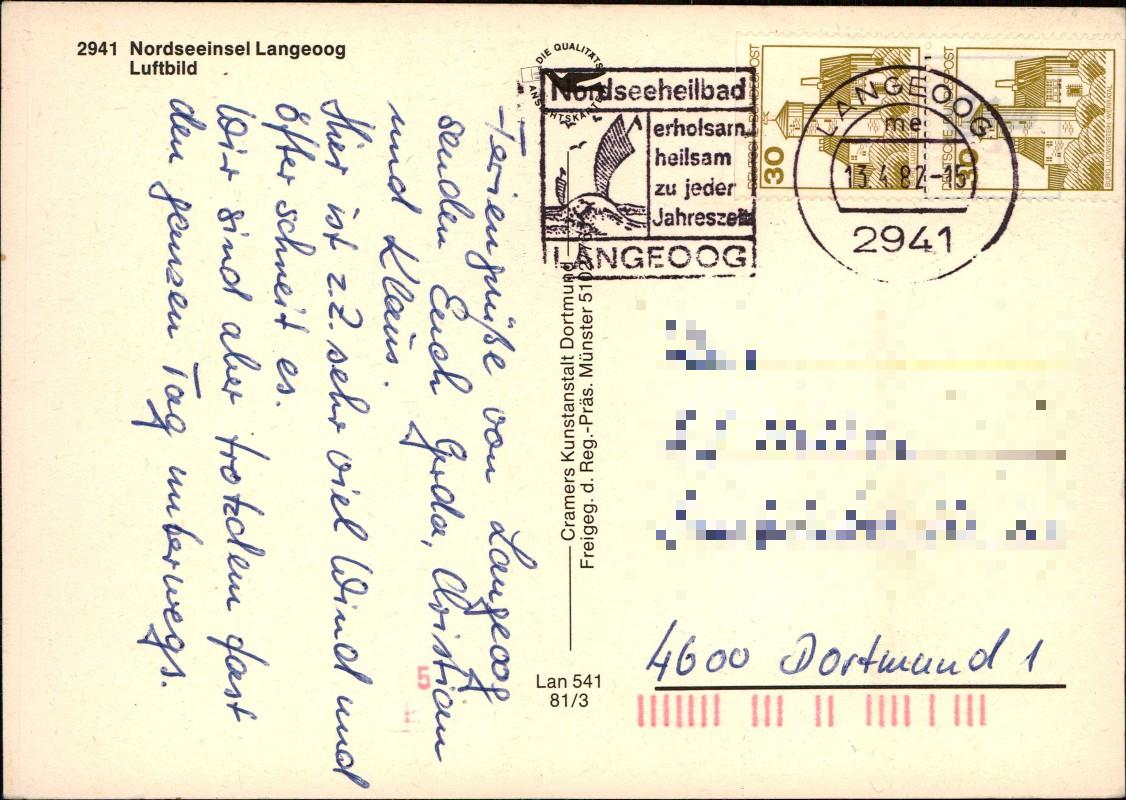 2941 Nordseeinsel Langeoog
Luftbild
Feriengrüße von Langeoog
senden Euch Gerda, Christian
und Klaus.
Hier ist z.Z. sehr viel Wind und
öfter schneit es.
Wir sind aber trotzdem fast
den ganzen Tag unterwegs.
DIE QUALITÄTS
ANSICHTSKARTE
Nordseeheilbad
erholsam
heilsam
zu jeder
Jahreszeit
LANGEOOG
DEUTSCHE BUNDESPOST
30
DEUTSCHE
30
LANGEOOG
me
13.4.82-15
2941
Cramers Kunstanstalt Dortmund
Freigeg. d. Reg.-Präs. Münster
Lan 541
81/3
5
4600 Dortmund 1